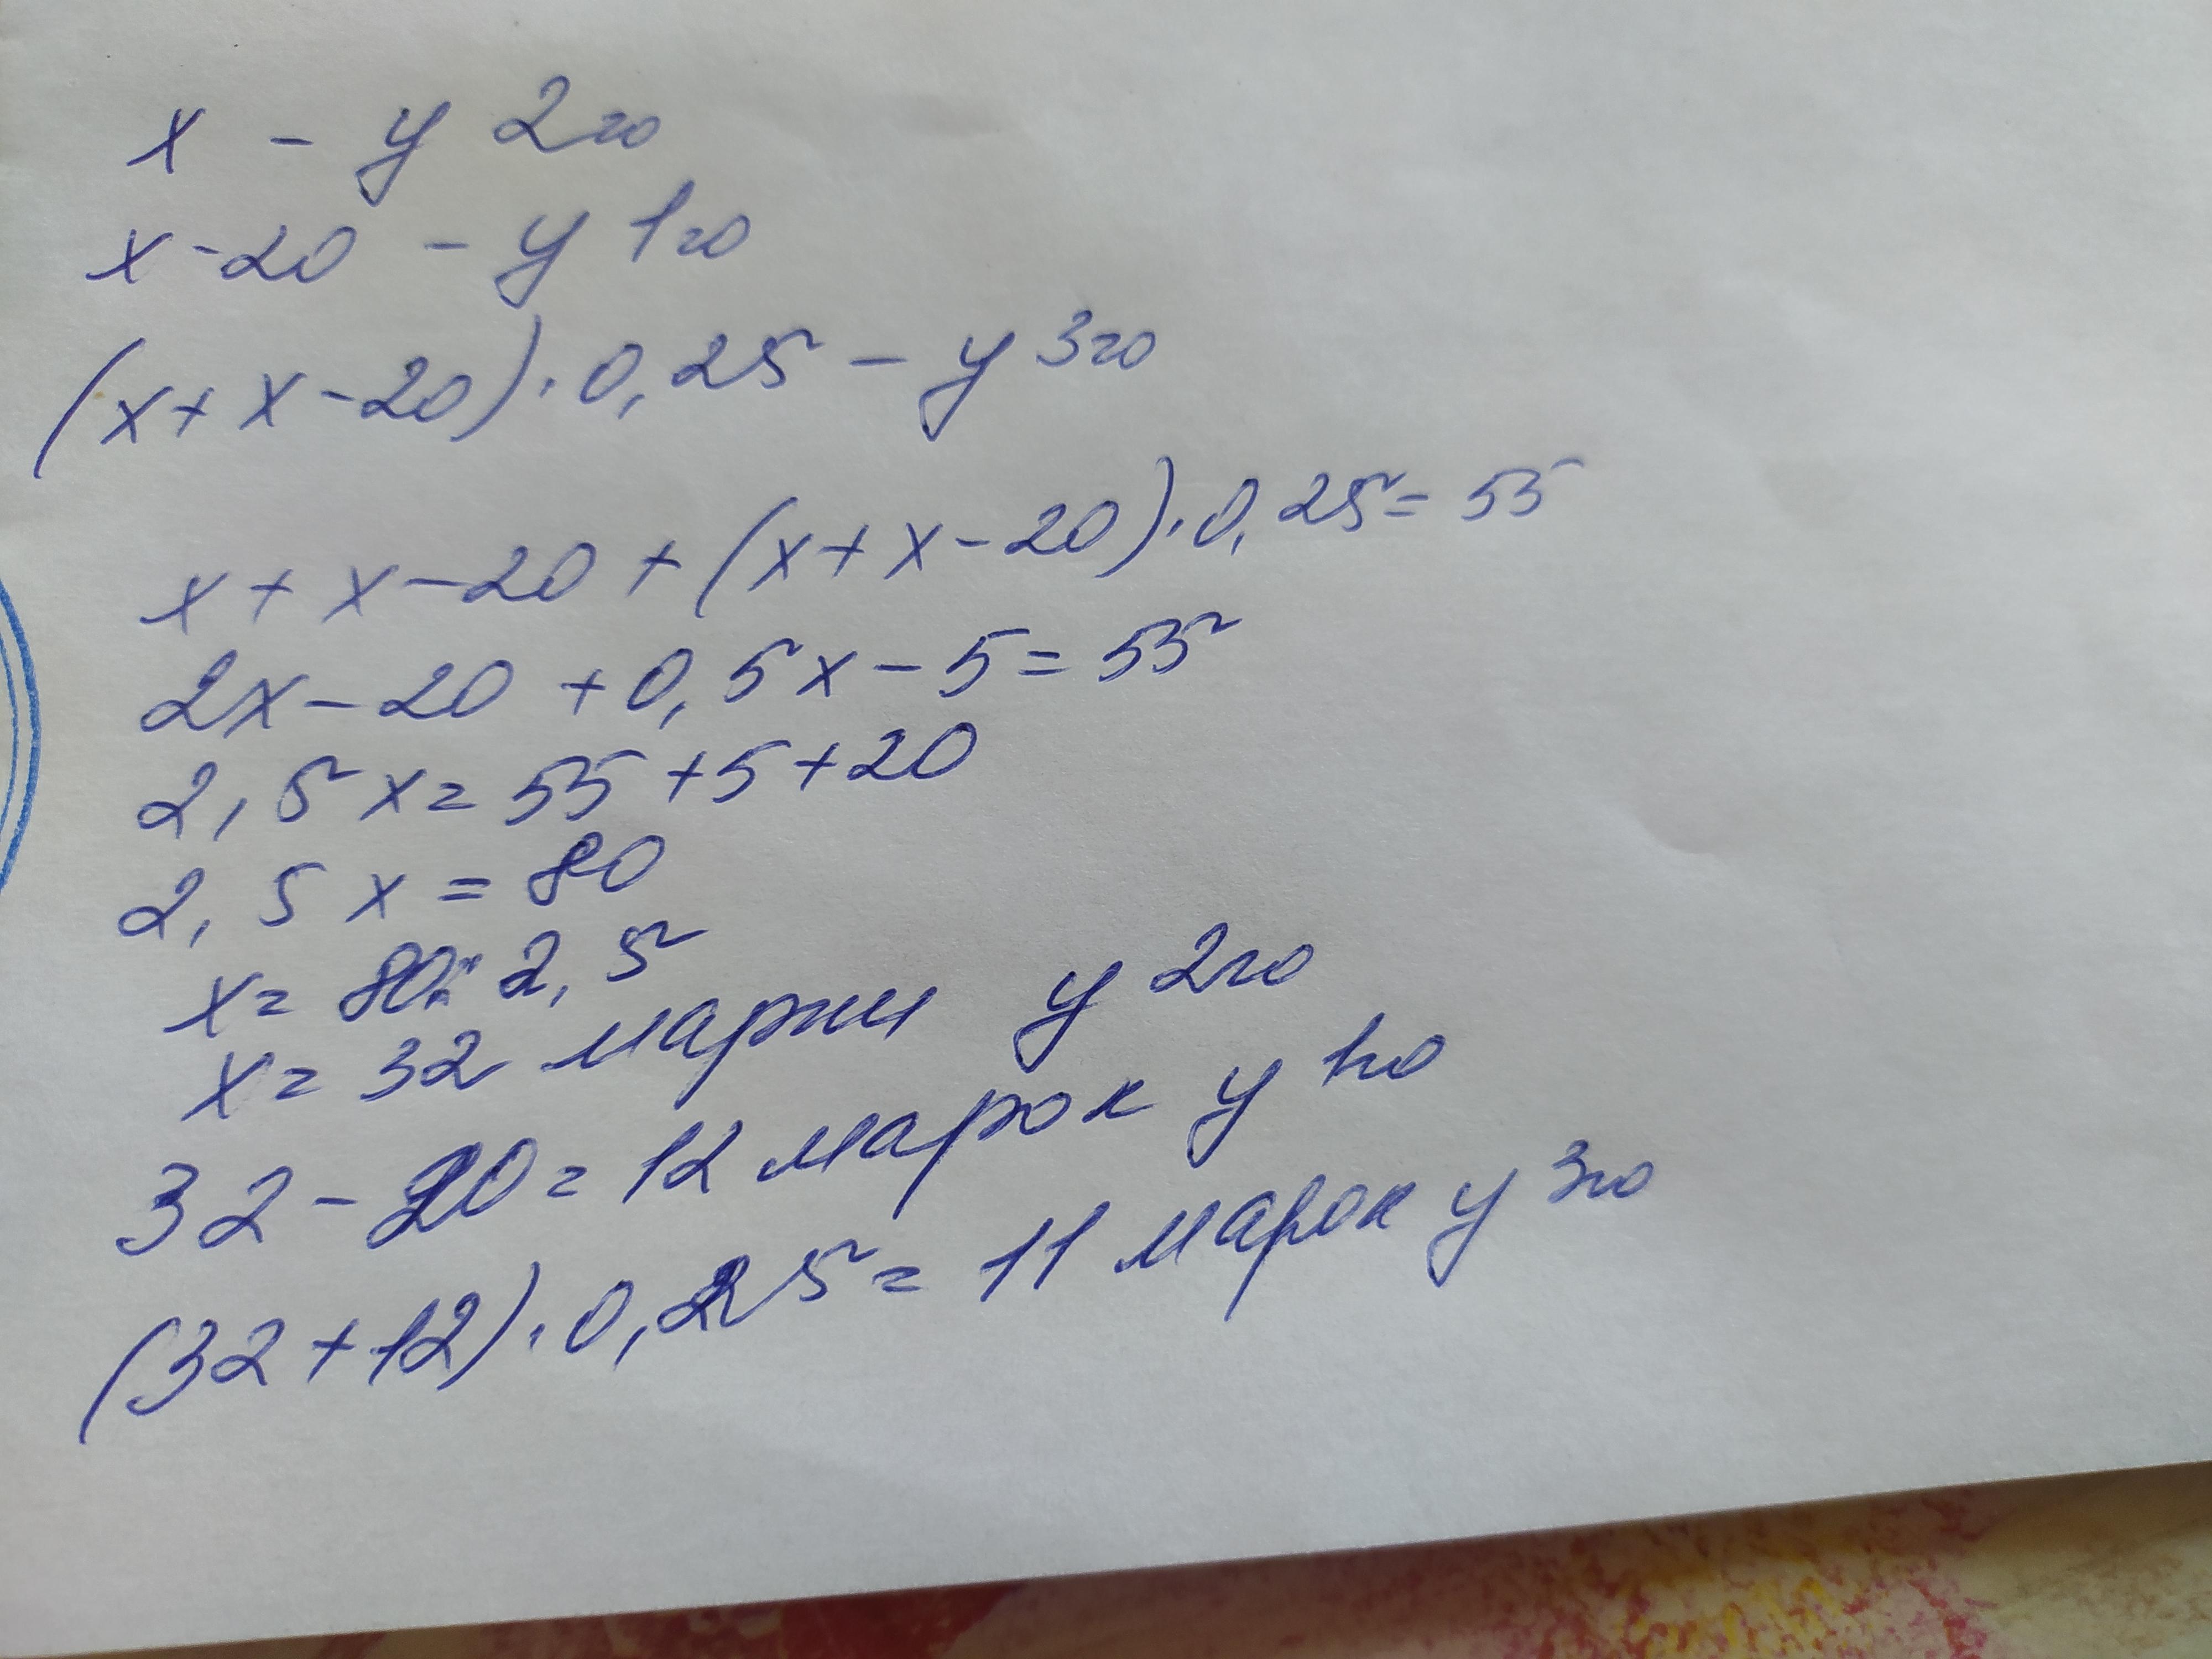 x - у 2го
x-20 - у 1го
(x+x-20)·0,25 - у 3го
x+x-20+(x+x-20)·0,25=55
2x-20+0,5x-5=55
2,5x=55+5+20
2,5x=80
x=80:2,5
x=32 марки у 2го
32-20=12 марок у 1го
(32+12)·0,25=11 марок у 3го